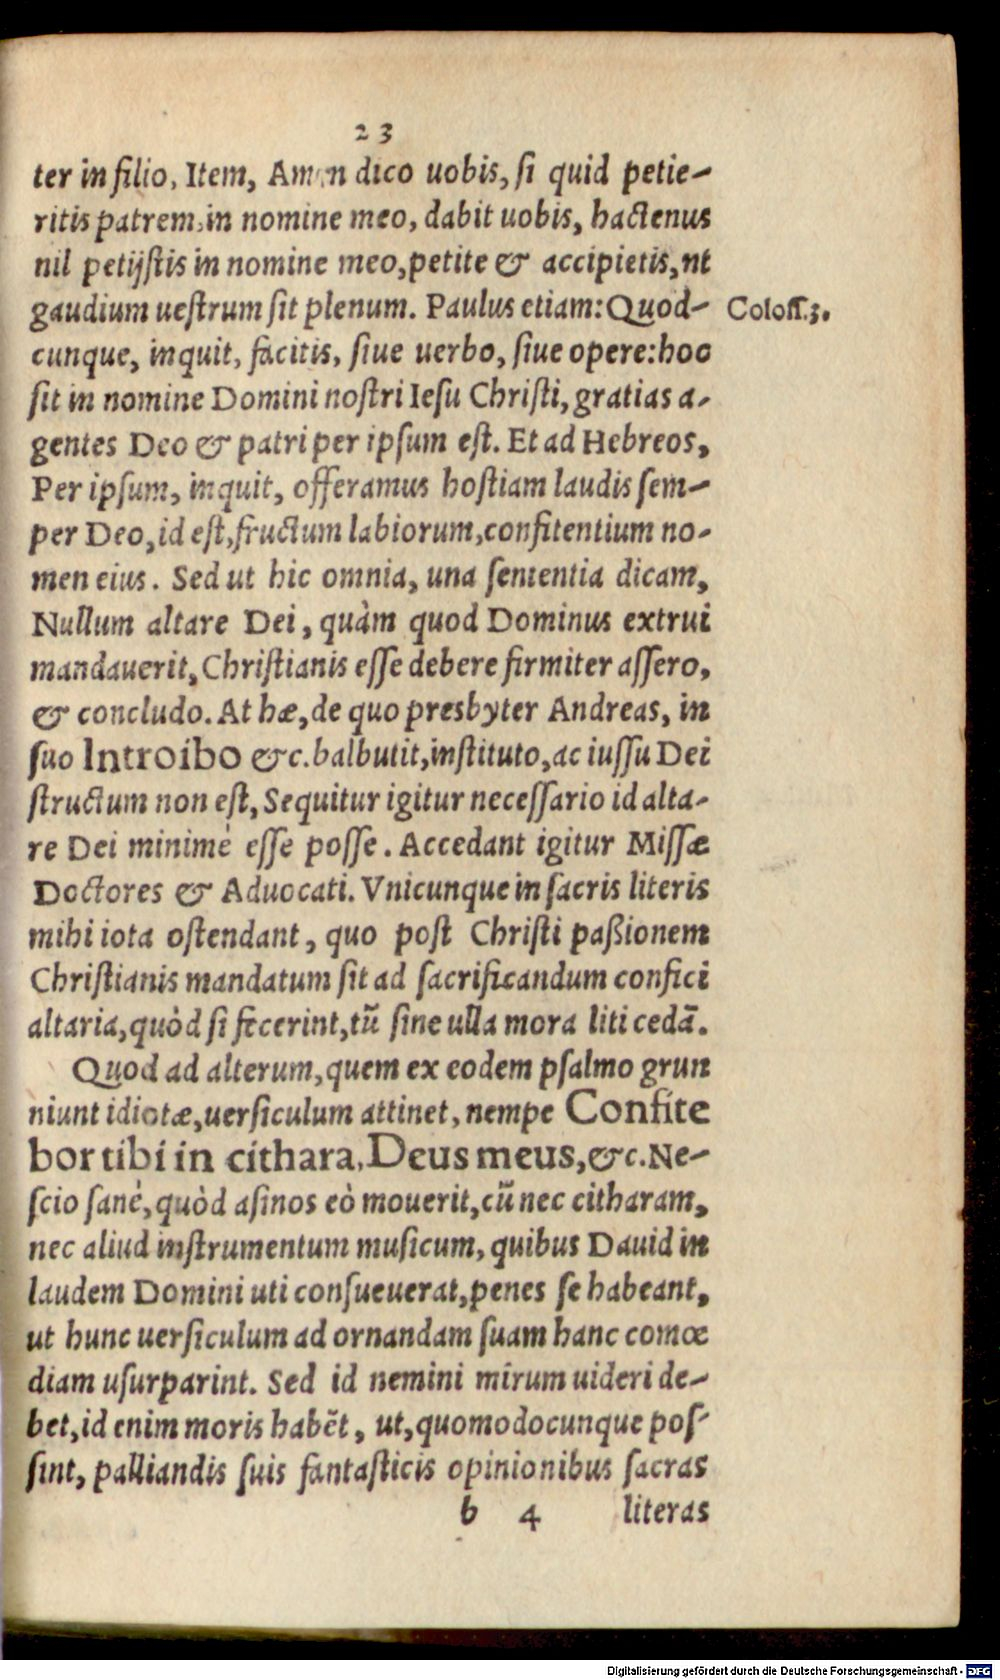 23
ter in filio, Item, Amen dico uobis, ſi quid petie-
ritis patrem, in nomine meo, dabit uobis, hactenus
nil petijſtis in nomine meo, petite & accipietis, nt
gaudium ueſtrum ſit plenum. Paulus etiam: Quod-
Coloſſ.3.
cunque, inquit, facitis, ſiue uerbo, ſiue opere: hoc
ſit in nomine Domini noſtri Ieſu Chriſti, gratias a-
gentes Deo & patri per ipſum eſt. Et ad Hebreos,
Per ipſum, inquit, offeramus hoſtiam laudis ſem-
per Deo, id eſt, fructum labiorum, confitentium no-
men eius. Sed ut hic omnia, una ſententia dicam,
Nullum altare Dei, quàm quod Dominus extrui
mandauerit, Chriſtianis eſſe debere firmiter aſſero,
& concludo. At hæ, de quo presbyter Andreas, in
ſuo Introibo &c. balbutit, inſtituto, ac iuſſu Dei
ſtructum non eſt, Sequitur igitur neceſſario id alta-
re Dei minimè eſſe poſſe. Accedant igitur Miſſæ
Doctores & Aduocati. Vnicunque in ſacris literis
mihi iota oſtendant, quo poſt Chriſti paßionem
Chriſtianis mandatum ſit ad ſacrificandum confici
altaria, quòd ſi fecerint, tũ ſine ulla mora liti cedã.
Quod ad alterum, quem ex eodem pſalmo grun
niunt idiotæ, uerſiculum attinet, nempe Confite
bor tibi in cithara, Deus meus, &c. Ne-
ſcio ſanè, quòd aſinos eò mouerit, cũ nec citharam,
nec aliud inſtrumentum muſicum, quibus Dauid in
laudem Domini uti conſueuerat, penes ſe habeant,
ut hunc uerſiculum ad ornandam ſuam hanc comœ
diam uſurparint. Sed id nemini mirum uideri de-
bet, id enim moris habẽt, ut, quomodocunque poſ-
ſint, palliandis ſuis fantaſticis opinionibus ſacras
b 4 literas
Digitalisierung gefördert durch die Deutsche Forschungsgemeinschaft - DFG